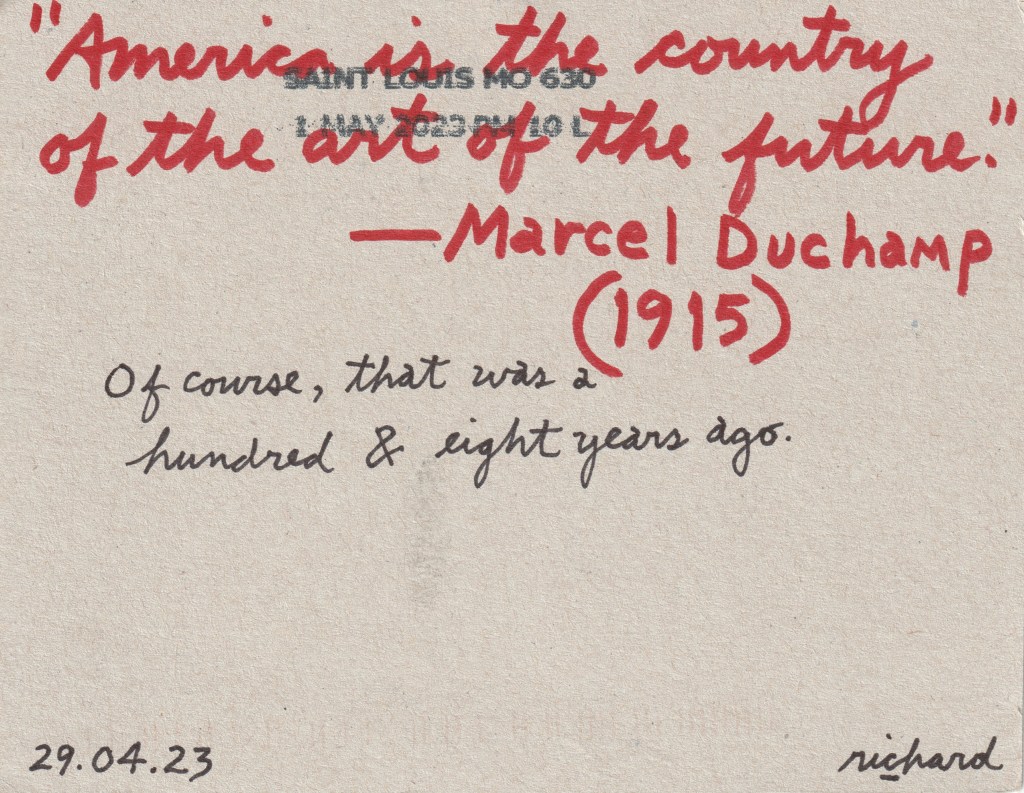 "America is the country
SAINT LOUIS MO 630
1 MAY 2023 PM 10 L
of the art of the future."
—Marcel Duchamp
(1915)
Of course, that was a
hundred & eight years ago.
29.04.23
richard